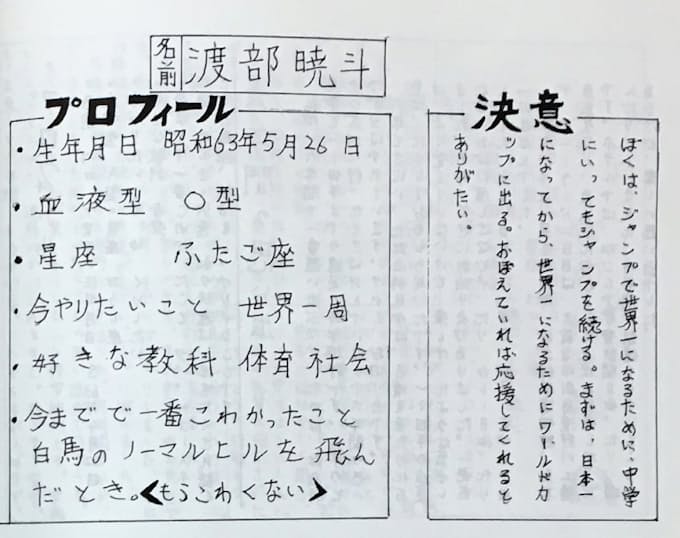 名前 渡部暁斗
プロフィール
・生年月日 昭和63年5月26日
・血液型 O型
・星座 ふたご座
・今やりたいこと 世界一周
・好きな教科 体育 社会
・今までで一番こわかったこと
白馬のノーマルヒルを飛ん
だとき。<もうこわくない>
決意
ぼくは、ジャンプで世界一になるために、中学
にいってもジャンプを続ける。まずは、日本一
になってから、世界一になるためにワールドカ
ップに出る。おぼえていれば応援してくれると
ありがたい。